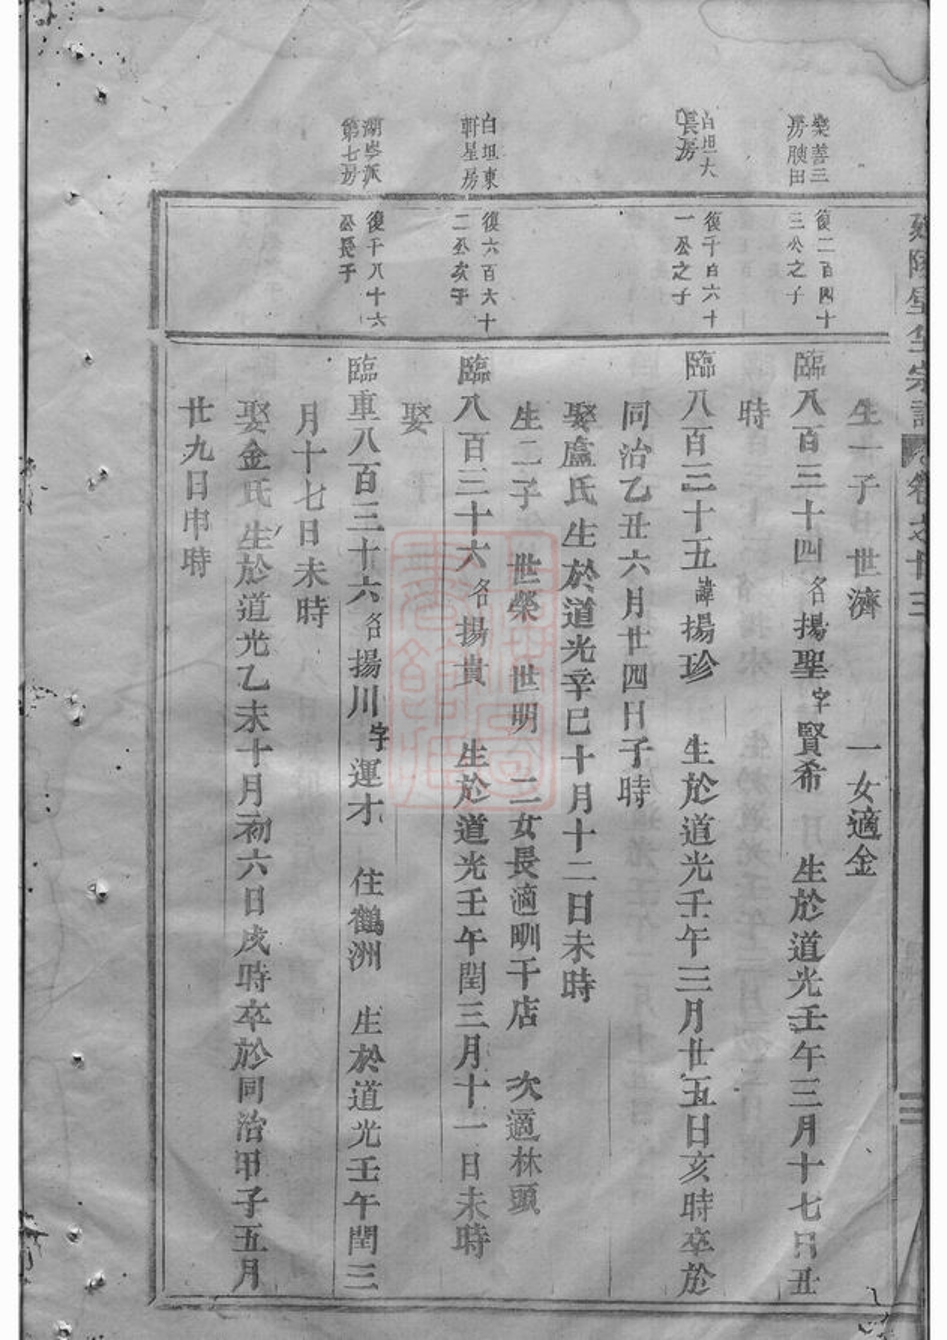 宗譜 卷之廿三
三
生一子 世濟 一女適金
樂善三
房腴田
復二百四十
三公之子
臨八百三十四名揚聖字賢希 生於道光壬午三月十七日丑
時
白坦大
長房
復千百六十
一公之子
臨八百三十五諱揚珍 生於道光壬午三月廿五日亥時卒於
同治乙丑六月廿四日子時
娶盧氏生於道光辛巳十月十二日未時
生二子 世榮 世明 二女長適甽干店 次適林頭
白坦東
軒星房
復六百六十
二公次子
臨八百三十六名揚貴 生於道光壬午閏三月十一日未時
娶
湖岑派
第七房
復千八十六
公長子
臨重八百三十六名揚川字運才 住鶴洲 生於道光壬午閏三
月十七日未時
娶金氏生於道光乙未十月初六日戌時卒於同治甲子五月
廿九日申時